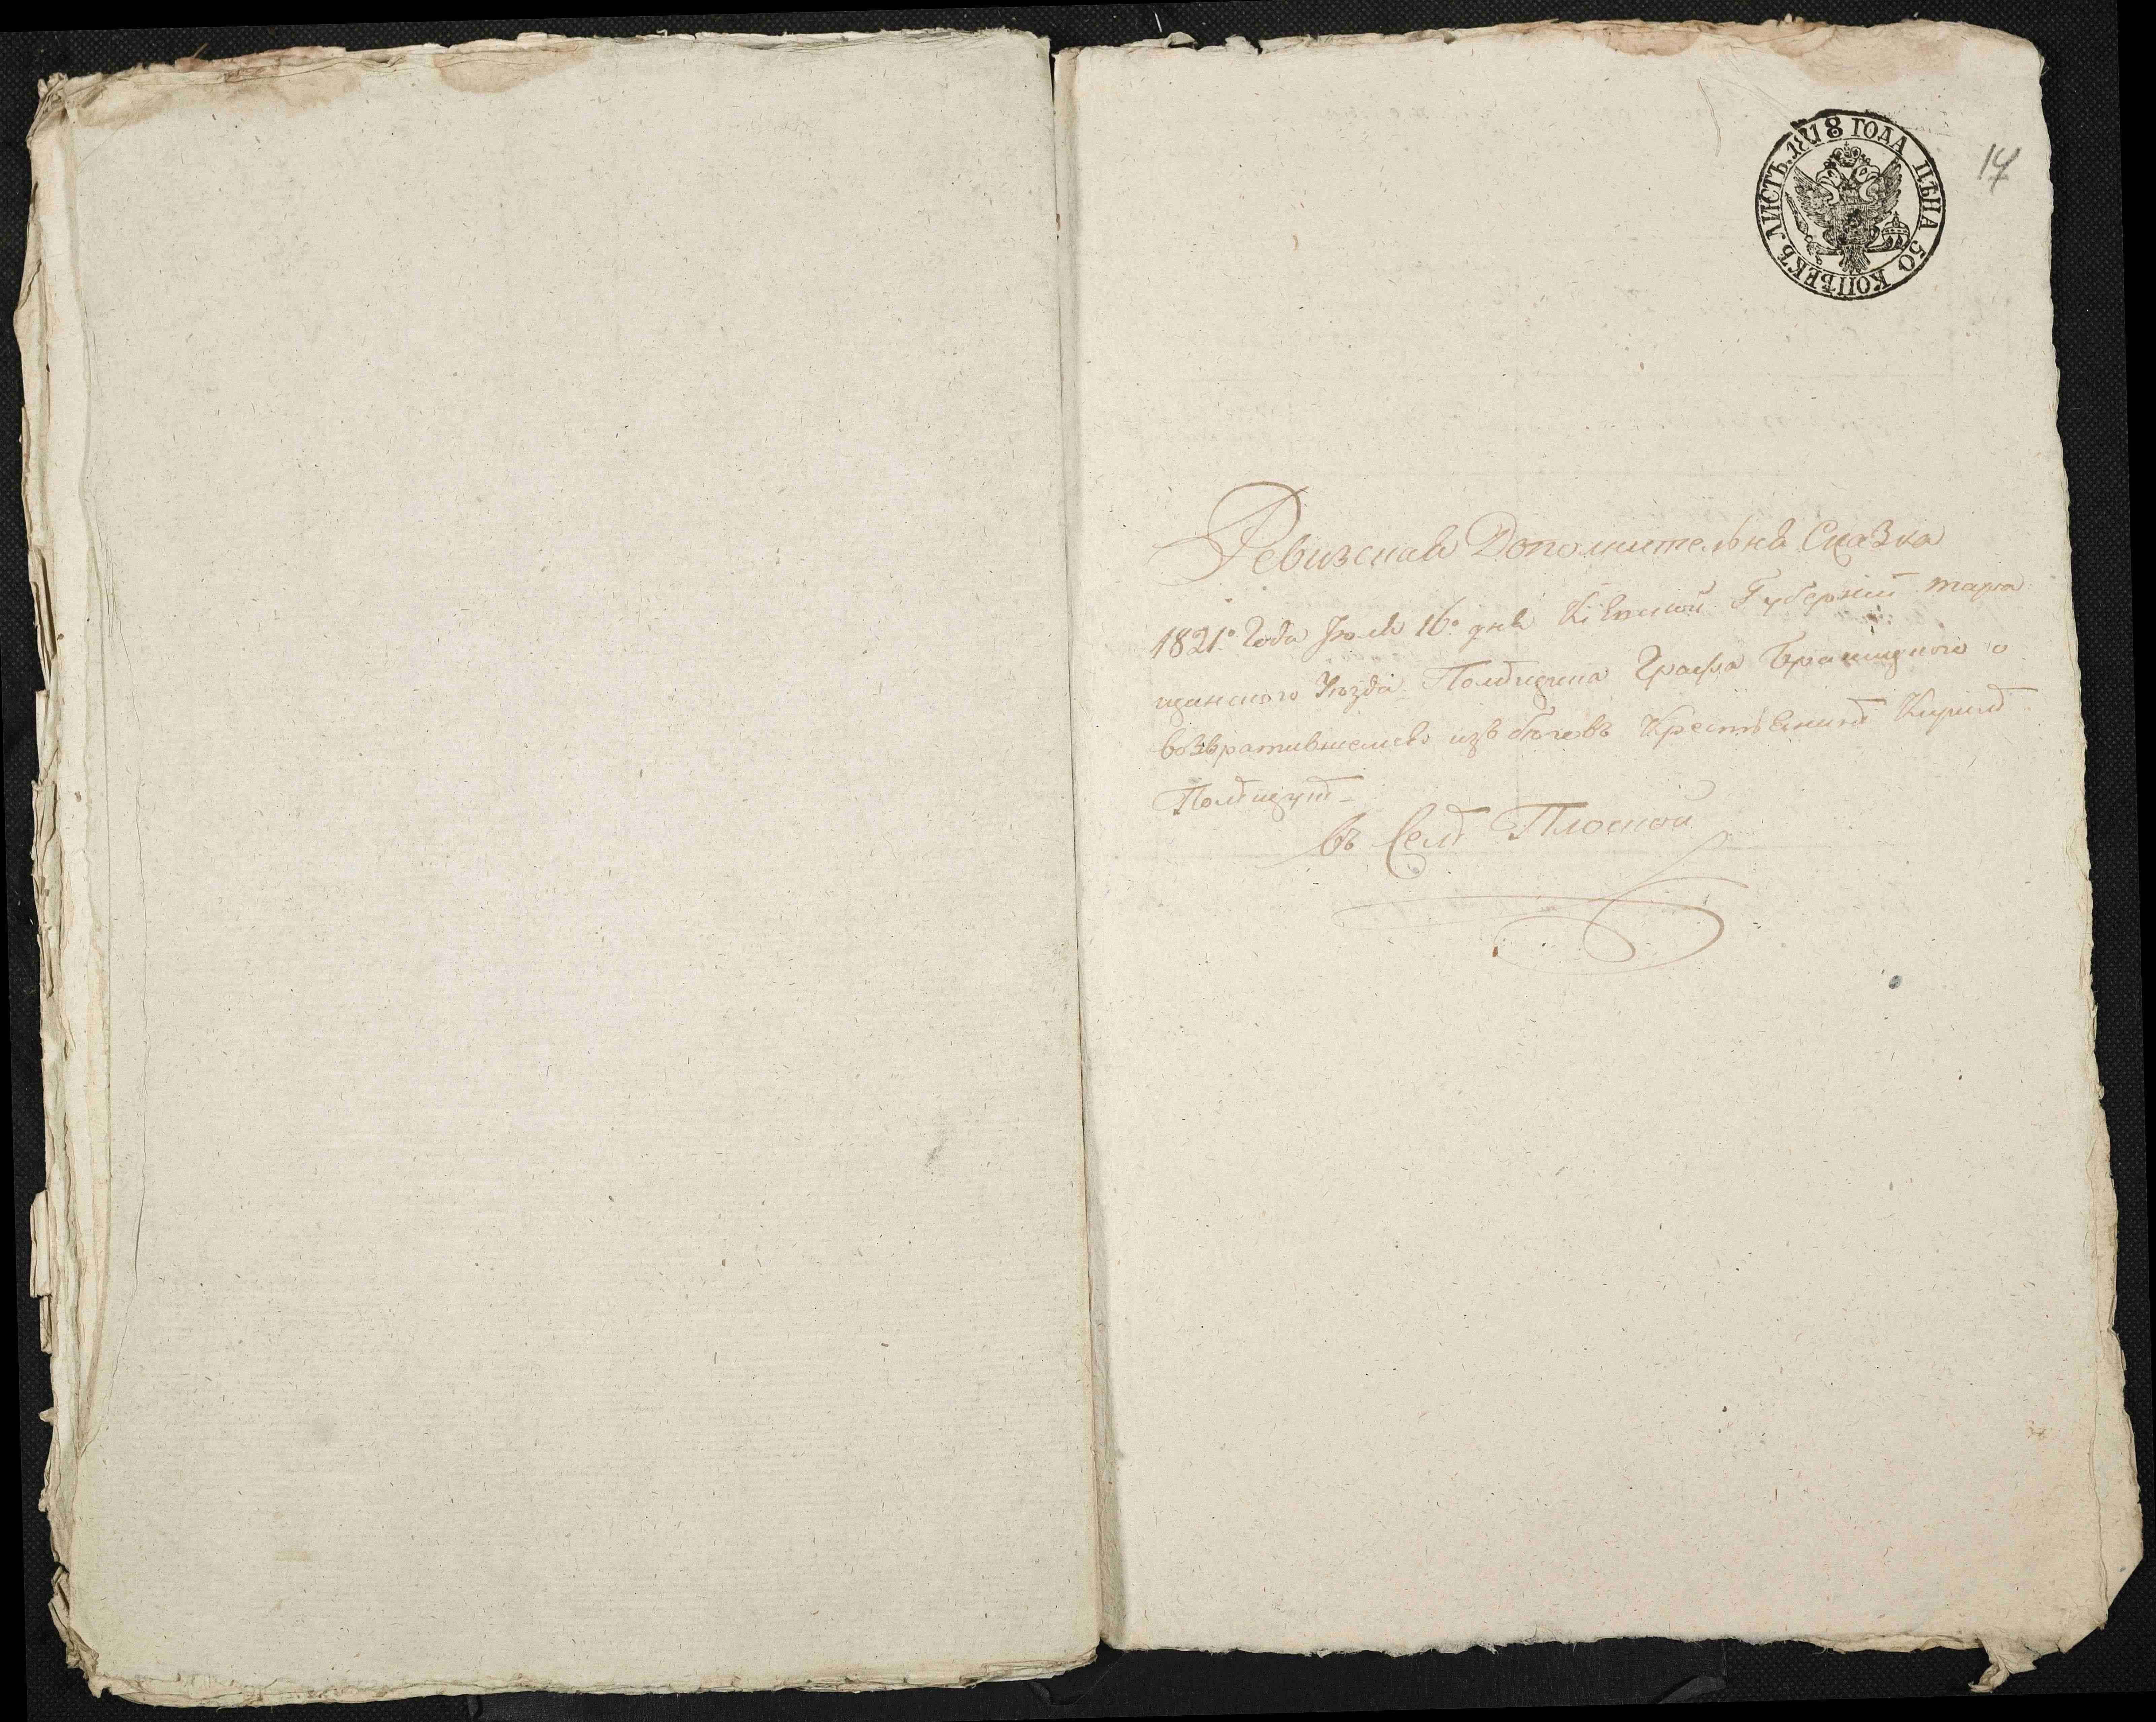 ЛИСТЪ. 1818 ГОДА ЦѢНА 50 КОПѢЕКЪ
17
Ревизская Дополнительна Сказка
1821го Года Июля 16го дня Кіевской Губерніи тара
щанского Уѣзда Помѣщика Графа Браницкого о
возвратившемся изъ бѣговъ Крестьянинѣ
въ Селѣ Плоской